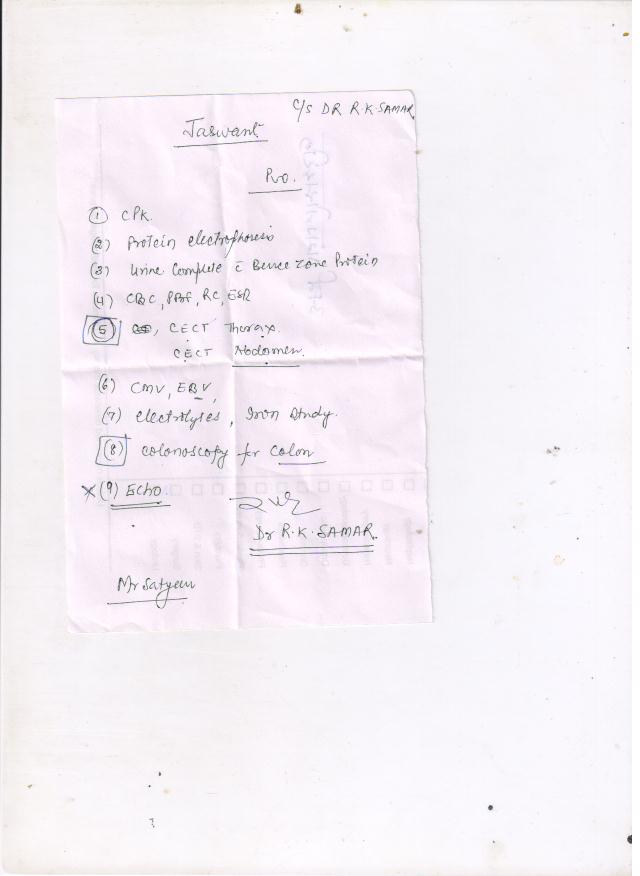 C/S DR R.K.SAMAR
Jaswant
(1) CPK.
(2) Protein electrophoresis
(3) Urine Complete c̄ Bence zone Protein
(4) CBC, PBF, RC, ESR
(5) CECT Thorax.
CECT Abdomen.
(6) CMV, EBV,
(7) electrolytes, Iron Study.
(8) Colonoscopy for Colon
x (9) Echo
Dr R.K.SAMAR.
Mr Satyen